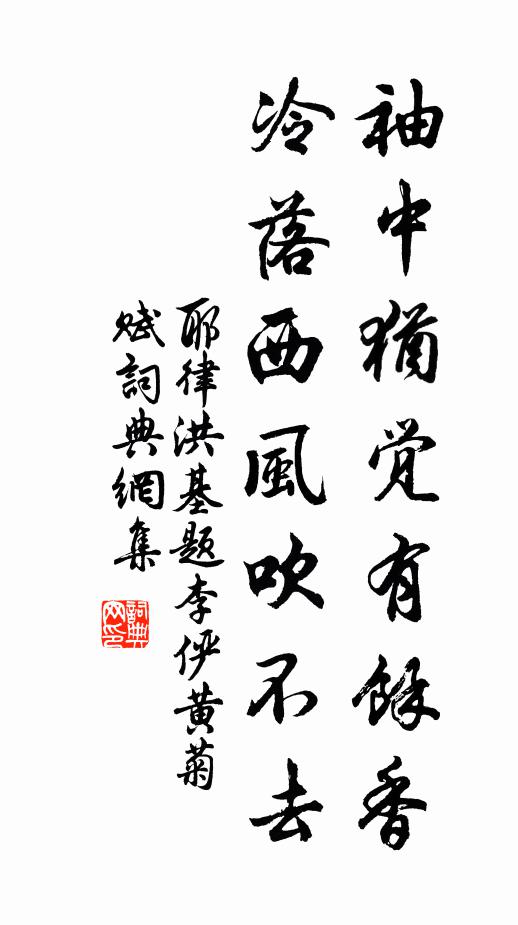 袖中猶覺有餘香
冷落西風吹不去
耶律洪基題李俨黄菊
赋詞典網集
詞典网印